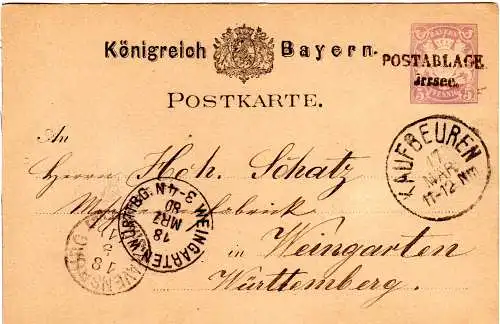 Königreich Bayern.
BAYERN
POSTABLAGE
Jrrsee.
PFENNIG
POSTKARTE.
An
Herrn Joh. Schatz
in Weingarten
Württemberg.
KAUFBEUREN
17
MAR
11-12 NM
WEINGARTEN WÜRTTBG.
18
MRZ
80
3-4 N
RAVENSBURG
18
3